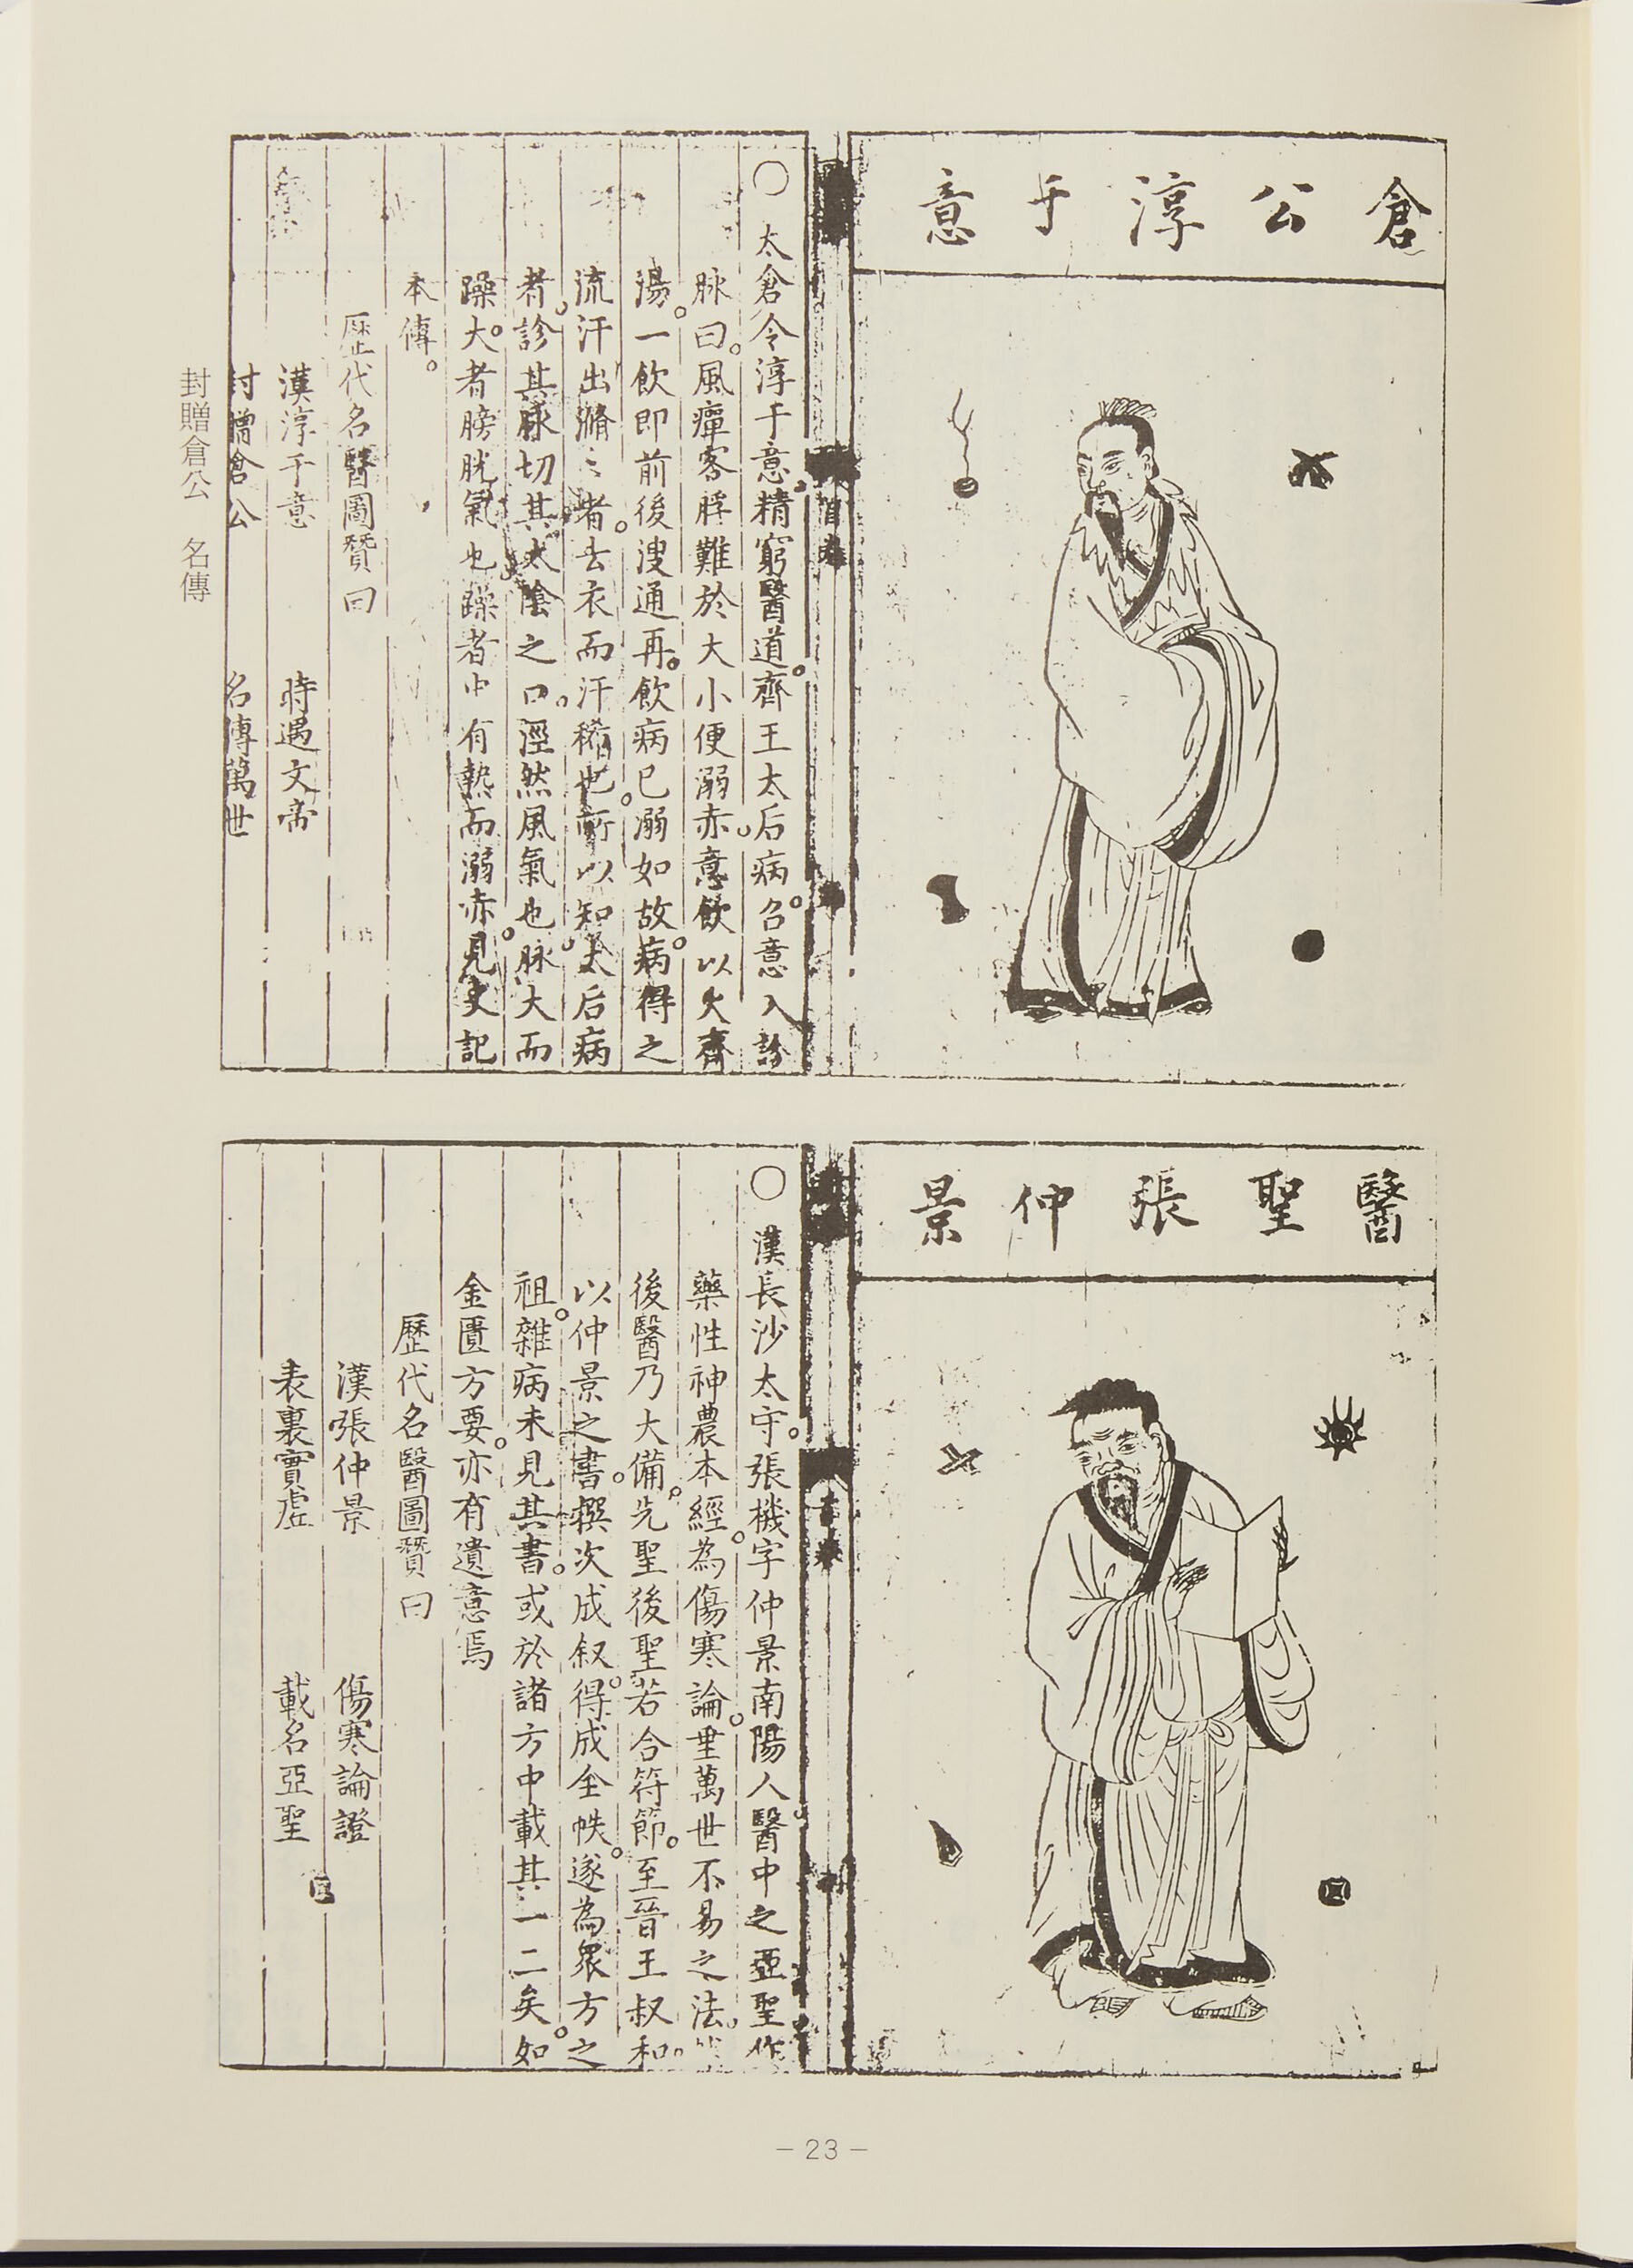 倉公淳于意
○太倉令淳于意精窮醫道齊王太后病召意入診
脉曰風癉客脬難於大小便溺赤意飲以火齊
湯一飲即前後溲通再飲病已溺如故病得之
流汗出滫〻者去衣而汗晞也所以知太后病
者診其脉切其太陰之口溼然風氣也脉大而
躁大者膀胱氣也躁者中有熱而溺赤見史記
本傳
歷代名醫圖贊曰
漢淳于意 時遇文帝
封贈倉公 名傳萬世
封贈倉公 名傳
醫聖張仲景
○漢長沙太守張機字仲景南陽人醫中之亞聖作
藥性神農本經為傷寒論垂萬世不易之法
後醫乃大備先聖後聖若合符節至晉王叔和
以仲景之書撰次成叙得成全帙遂為眾方之
祖雜病未見其書或於諸方中載其一二矣如
金匱方要亦有遺意焉
歷代名醫圖贊曰
漢張仲景 傷寒論證
表裏實虛 載名亞聖
－23－